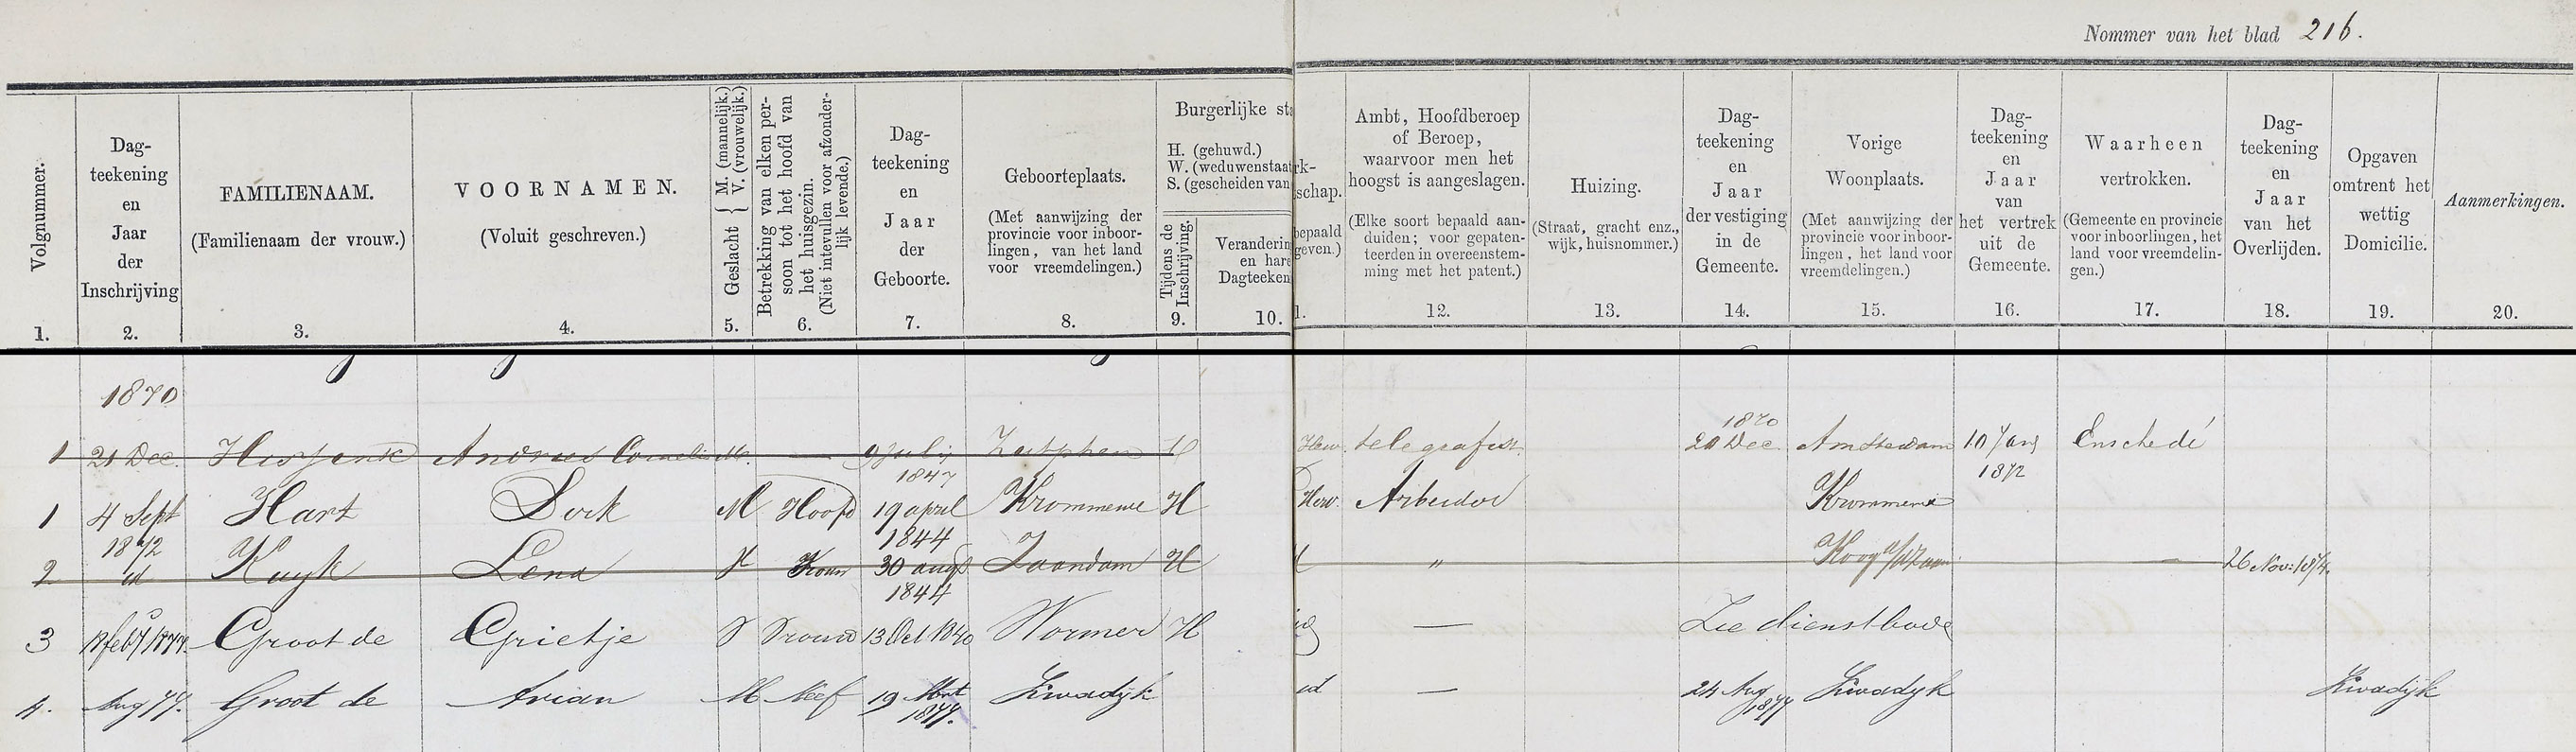 Nommer van het blad 216.
Volgnummer.
1.
Dag-
teekening
en
Jaar
der
Inschrijving
2.
FAMILIENAAM.
(Familienaam der vrouw.)
3.
VOORNAMEN.
(Voluit geschreven.)
4.
Geslacht { M. (mannelijk.)
V. (vrouwelijk.)
5.
Betrekking van elken per-
soon tot het hoofd van
het huisgezin.
(Niet intevullen voor afzonder-
lijk levende.)
6.
Dag-
teekening
en
Jaar
der
Geboorte.
7.
Geboorteplaats.
(Met aanwijzing der
provincie voor inboor-
lingen, van het land
voor vreemdelingen.)
8.
Burgerlijke sta
H. (gehuwd.)
W. (weduwenstaat
S. (gescheiden van
Tijdens de
Inschrijving.
9.
Veranderin
en hare
Dagteeken
10.
rk-
schap.
bepaald
geven.)
1.
Ambt, Hoofdberoep
of Beroep,
waarvoor men het
hoogst is aangeslagen.
(Elke soort bepaald aan-
duiden; voor gepaten-
teerden in overeenstem-
ming met het patent.)
12.
Huizing.
(Straat, gracht enz.,
wijk, huisnommer.)
13.
Dag-
teekening
en
Jaar
der vestiging
in de
Gemeente.
14.
Vorige
Woonplaats.
(Met aanwijzing der
provincie voor inboor-
lingen, het land voor
vreemdelingen.)
15.
Dag-
teekening
en
Jaar
van
het vertrek
uit de
Gemeente.
16.
Waarheen
vertrokken.
(Gemeente en provincie
voor inboorlingen, het
land voor vreemdelin-
gen.)
17.
Dag-
teekening
en
Jaar
van het
Overlijden.
18.
Opgaven
omtrent het
wettig
Domicilie.
19.
Aanmerkingen.
20.
1870
1 21 Dec. Andries Cornelis M. — 9 Julij 1847 Zutphen H Herv. telegrafist 1870 20 Dec. Amsterdam 10 Jan 1872 Enschedé
1 4 Sept 1872 Hart Dirk M Hoofd 19 april 1844 Krommenie H Herv. Arbeider Krommenie
2 id Kuyk Lena Vrouw 30 augs 1844 Zaandam H " Koog a/d Zaan — 26 Nov: 1874.
3 Groot de Grietje Vrouw 13 Oct 1840 Wormer H — Zie dienstbode
4. Aug 77. Groot de Arian M Neef 19 Mrt 1877. Kwadyk id — 24 Aug 1877 Kwadyk Kwadijk